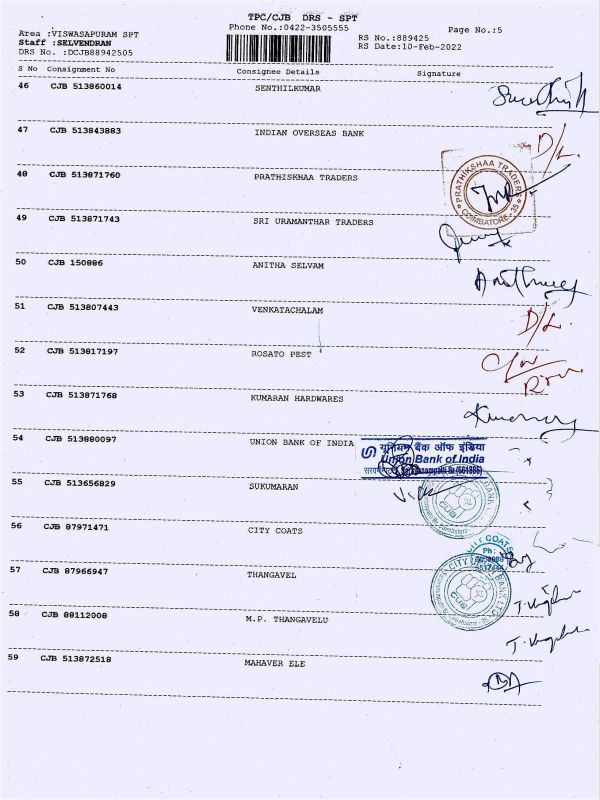 TPC/CJB DRS - SPT
Area :VISWASAPURAM SPT
Phone No.:0422-3505555
Page No.:5
Staff :SELVENDRAN
RS No.:889425
DRS No. :DCJB88942505
RS Date:10-Feb-2022
S No Consignment No Consignee Details Signature
46 CJB 513860014 SENTHILKUMAR
47 CJB 513843883 INDIAN OVERSEAS BANK
D/L.
48 CJB 513871760 PRATHISKHAA TRADERS
PRATHIKSHAA TRADERS
COIMBATORE - 35
49 CJB 513871743 SRI URAMANTHAR TRADERS
50 CJB 150886 ANITHA SELVAM
51 CJB 513807443 VENKATACHALAM
D/L.
52 CJB 513817197 ROSATO PEST
53 CJB 513871768 KUMARAN HARDWARES
54 CJB 513880097 UNION BANK OF INDIA
यूनियन बैंक ऑफ इंडिया
Union Bank of India
55 CJB 513656829 SUKUMARAN
56 CJB 87971471 CITY COATS
CITY COATS
Ph :
57 CJB 87966947 THANGAVEL
58 CJB 88112008 M.P. THANGAVELU
59 CJB 513872518 MAHAVER ELE